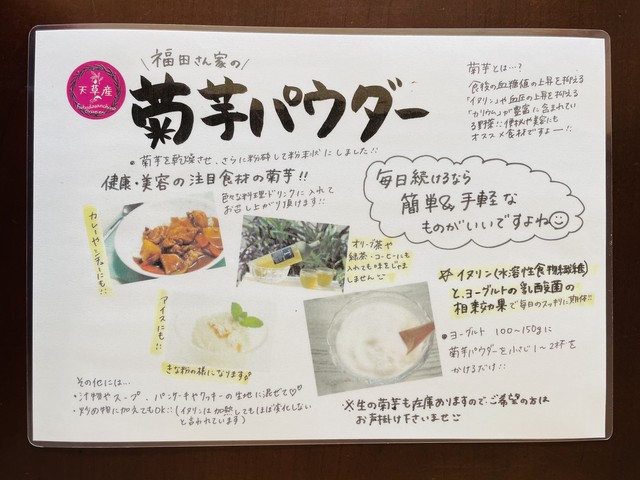 天草産
福田さん家の
菊芋パウダー
・菊芋を乾燥させ、さらに粉砕して粉末状にしました!!
健康・美容の注目食材の菊芋!!
色々な料理・ドリンクに入れて
お召し上がり頂けます!!
菊芋とは…?
食後の血糖値の上昇を抑える
「イヌリン」や血圧の上昇を抑える
「カリウム」が豊富に含まれてい
る野菜!!便秘や美容にも
オススメ食材ですよー!!
毎日続けるなら
簡単&手軽な
ものがいいですよね
カレーやシチューにも!!
オリーブ茶や
緑茶・コーヒーにも
入れても味をじゃま
しません
アイスにも!!
きな粉の様になります
イヌリン(水溶性食物繊維)
と、ヨーグルトの乳酸菌の
相乗効果で毎日のスッキリに期待!!
・ヨーグルト 100〜150gに
菊芋パウダーを小さじ1〜2杯を
かけるだけ!!
その他には…
・汁物やスープ、パンケーキやクッキーの生地に混ぜて♡♡
・炒め物に加えてもOK!!(イヌリンは加熱してもほぼ劣化しない
と言われています)
※生の菊芋も在庫ありますので、ご希望の方は
お声掛け下さいませ